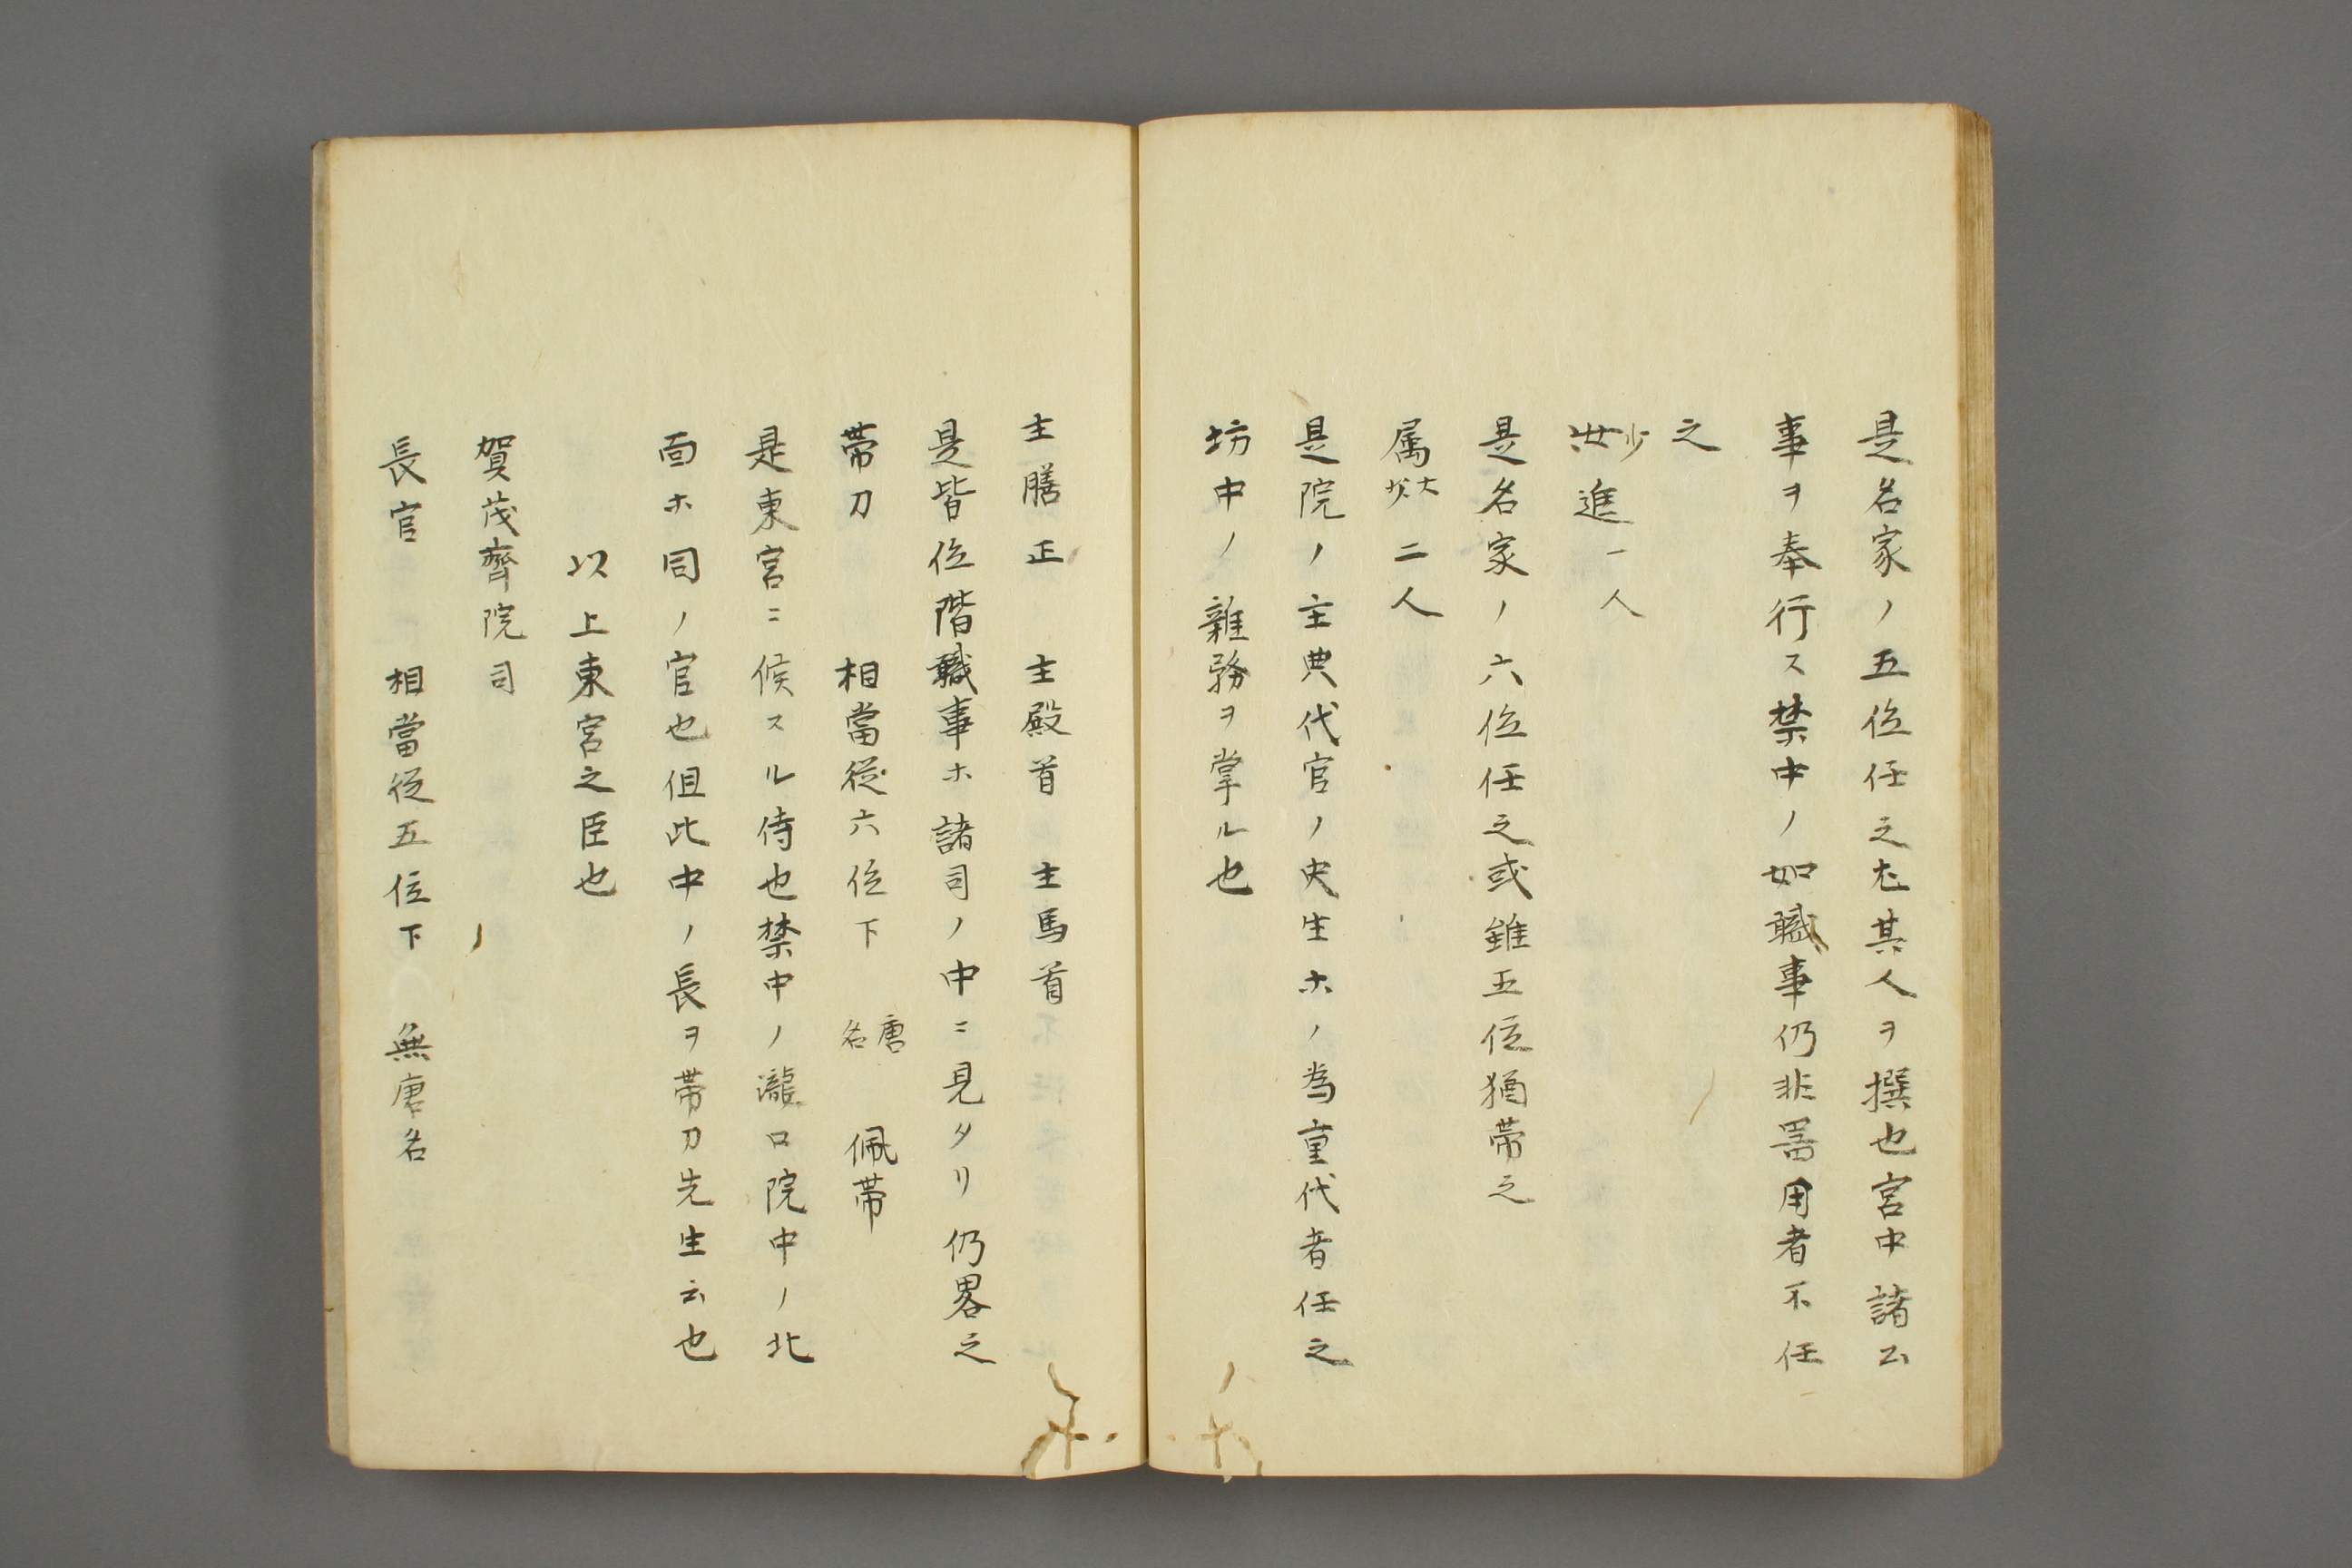 是名家ノ五位任之尤其人ヲ撰也宮中諸公
事ヲ奉行ス禁中ノ如職事仍非器用者不任
之
少進一人
是名家ノ六位任之或雖五位猶帯之
属 大 少 二人
是院ノ主典代官ノ史生ホノ為重代者任之
坊中ノ雑務ヲ掌ル也
主膳正 主殿首 主馬首
是皆位階職事ホ諸司ノ中ニ見タリ仍畧之
帯刀 相當従六位下 唐名 佩帯
是東宮ニ候スル侍也禁中ノ瀧口院中ノ北
面ホ同ノ官也但此中ノ長ヲ帯刀先生云也
以上東宮之臣也
賀茂齊院司
長官 相當従五位下 無唐名